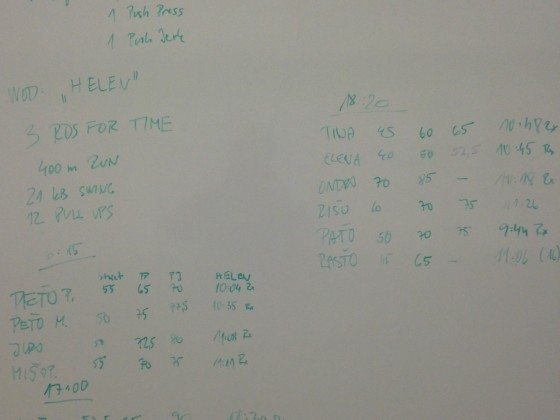 1 Push Press
1 Push Jerk
WOD: „HELEN"
3 RDS FOR TIME
400 m RUN
21 KB SWING
12 PULL UPS
PP PJ HELEN
PEŤO P. 55 65 70 10:04 Rx
PEŤO M. 50 75 77,5 10:35 Rx
50 72,5 80 Rx
MIŠO P. 55 70 75 Rx
17:00
18:20
TINA 45 60 65 10:48 Rx
ELENA 40 50 52,5 10:45 Rx
ONDRO 70 85 – 10:18 Rx
RIŠO 60 70 75 11:26
PAŤO 50 70 75 9:44 Rx
RASŤO 45 65 – 11:06 (16)